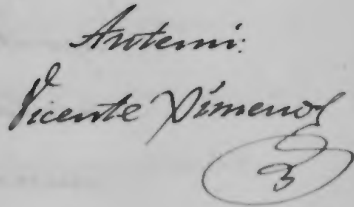 Antemi:
Vicente Ximenos